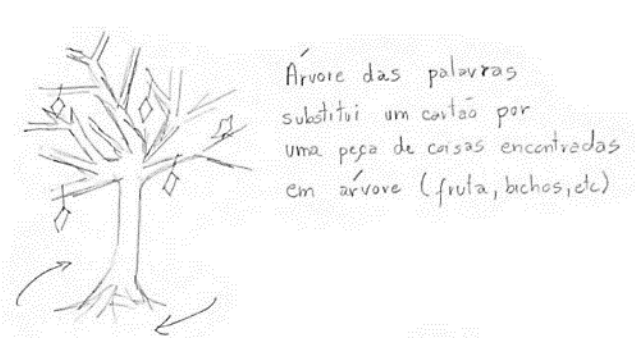 Árvore das palavras
substitui um cartão por
uma peça de coisas encontradas
em árvore (fruta, bichos, etc)